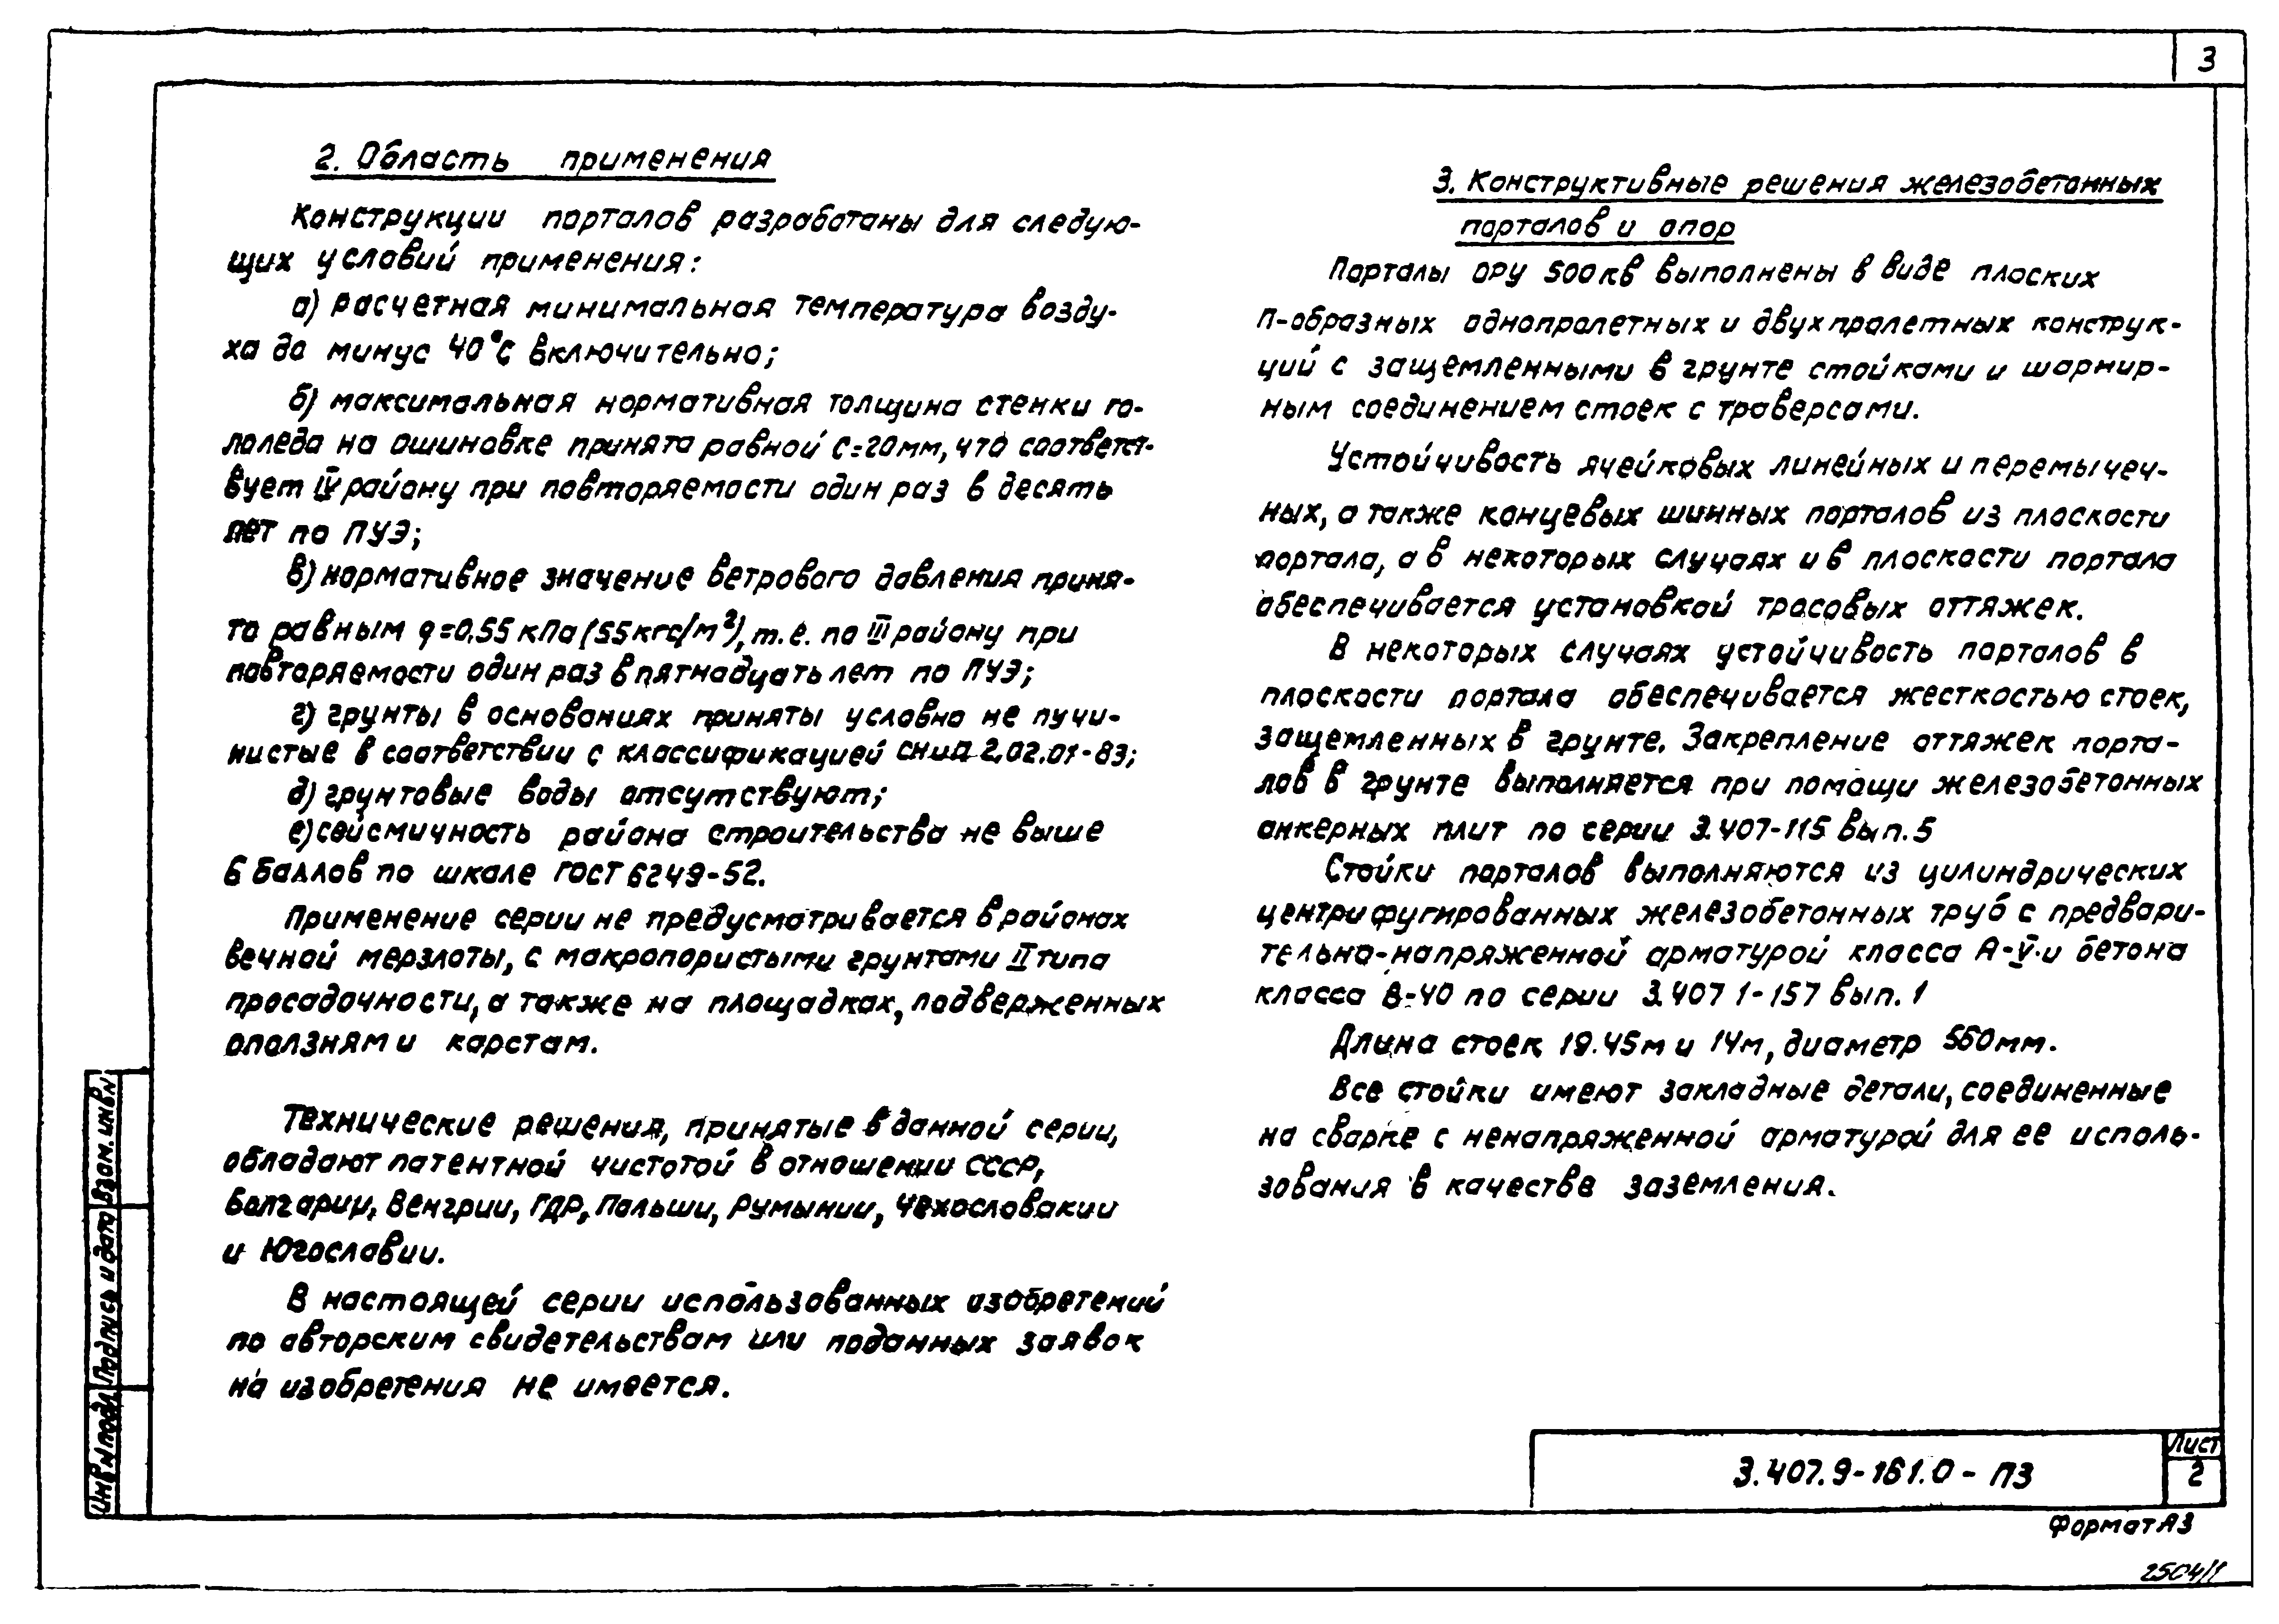 3
2. Область применения
Конструкции порталов разработаны для следую-
щих условий применения:
а) расчетная минимальная температура возду-
ха до минус 40°С включительно;
б) максимальная нормативная толщина стенки го-
лоледа на ошиновке принята равной С=20мм, что соответст-
вует IV району при повторяемости один раз в десять
лет по ПУЭ;
в) нормативное значение ветрового давления приня-
то равным q=0,55 кПа (55кгс/м²), т.е. по III району при
повторяемости один раз в пятнадцать лет по ПУЭ;
г) грунты в основаниях приняты условно не пучи-
нистые в соответствии с классификацией СНиП 2.02.01-83;
д) грунтовые воды отсутствуют;
е) сейсмичность района строительства не выше
6 баллов по шкале ГОСТ 6249-52.
Применение серии не предусматривается в районах
вечной мерзлоты, с макропористыми грунтами II типа
просадочности, а также на площадках, подверженных
оползням и карстам.
Технические решения, принятые в данной серии,
обладают патентной чистотой в отношении СССР,
Болгарии, Венгрии, ГДР, Польши, Румынии, Чехословакии
и Югославии.
В настоящей серии использованных изобретений
по авторским свидетельствам или поданных заявок
на изобретения не имеется.
3. Конструктивные решения железобетонных
порталов и опор
Порталы ОРУ 500кВ выполнены в виде плоских
П-образных однопролетных и двухпролетных конструк-
ций с защемленными в грунте стойками и шарнир-
ным соединением стоек с траверсами.
Устойчивость ячейковых линейных и перемычеч-
ных, а также концевых шинных порталов из плоскости
портала, а в некоторых случаях и в плоскости портала
обеспечивается установкой тросовых оттяжек.
В некоторых случаях устойчивость порталов в
плоскости портала обеспечивается жесткостью стоек,
защемленных в грунте. Закрепление оттяжек порта-
лов в грунте выполняется при помощи железобетонных
анкерных плит по серии 3.407-115 вып.5
Стойки порталов выполняются из цилиндрических
центрифугированных железобетонных труб с предвари-
тельно-напряженной арматурой класса А-V и бетона
класса В-40 по серии 3.407 1-157 вып.1
Длина стоек 19.45м и 14м, диаметр 560мм.
Все стойки имеют закладные детали, соединенные
на сварке с ненапряженной арматурой для ее исполь-
зования в качестве заземления.
Взам. инв.N
Подпись и дата
Инв N подл.
3.407.9-161.0-ПЗ
Лист
2
Формат А3
2504/1